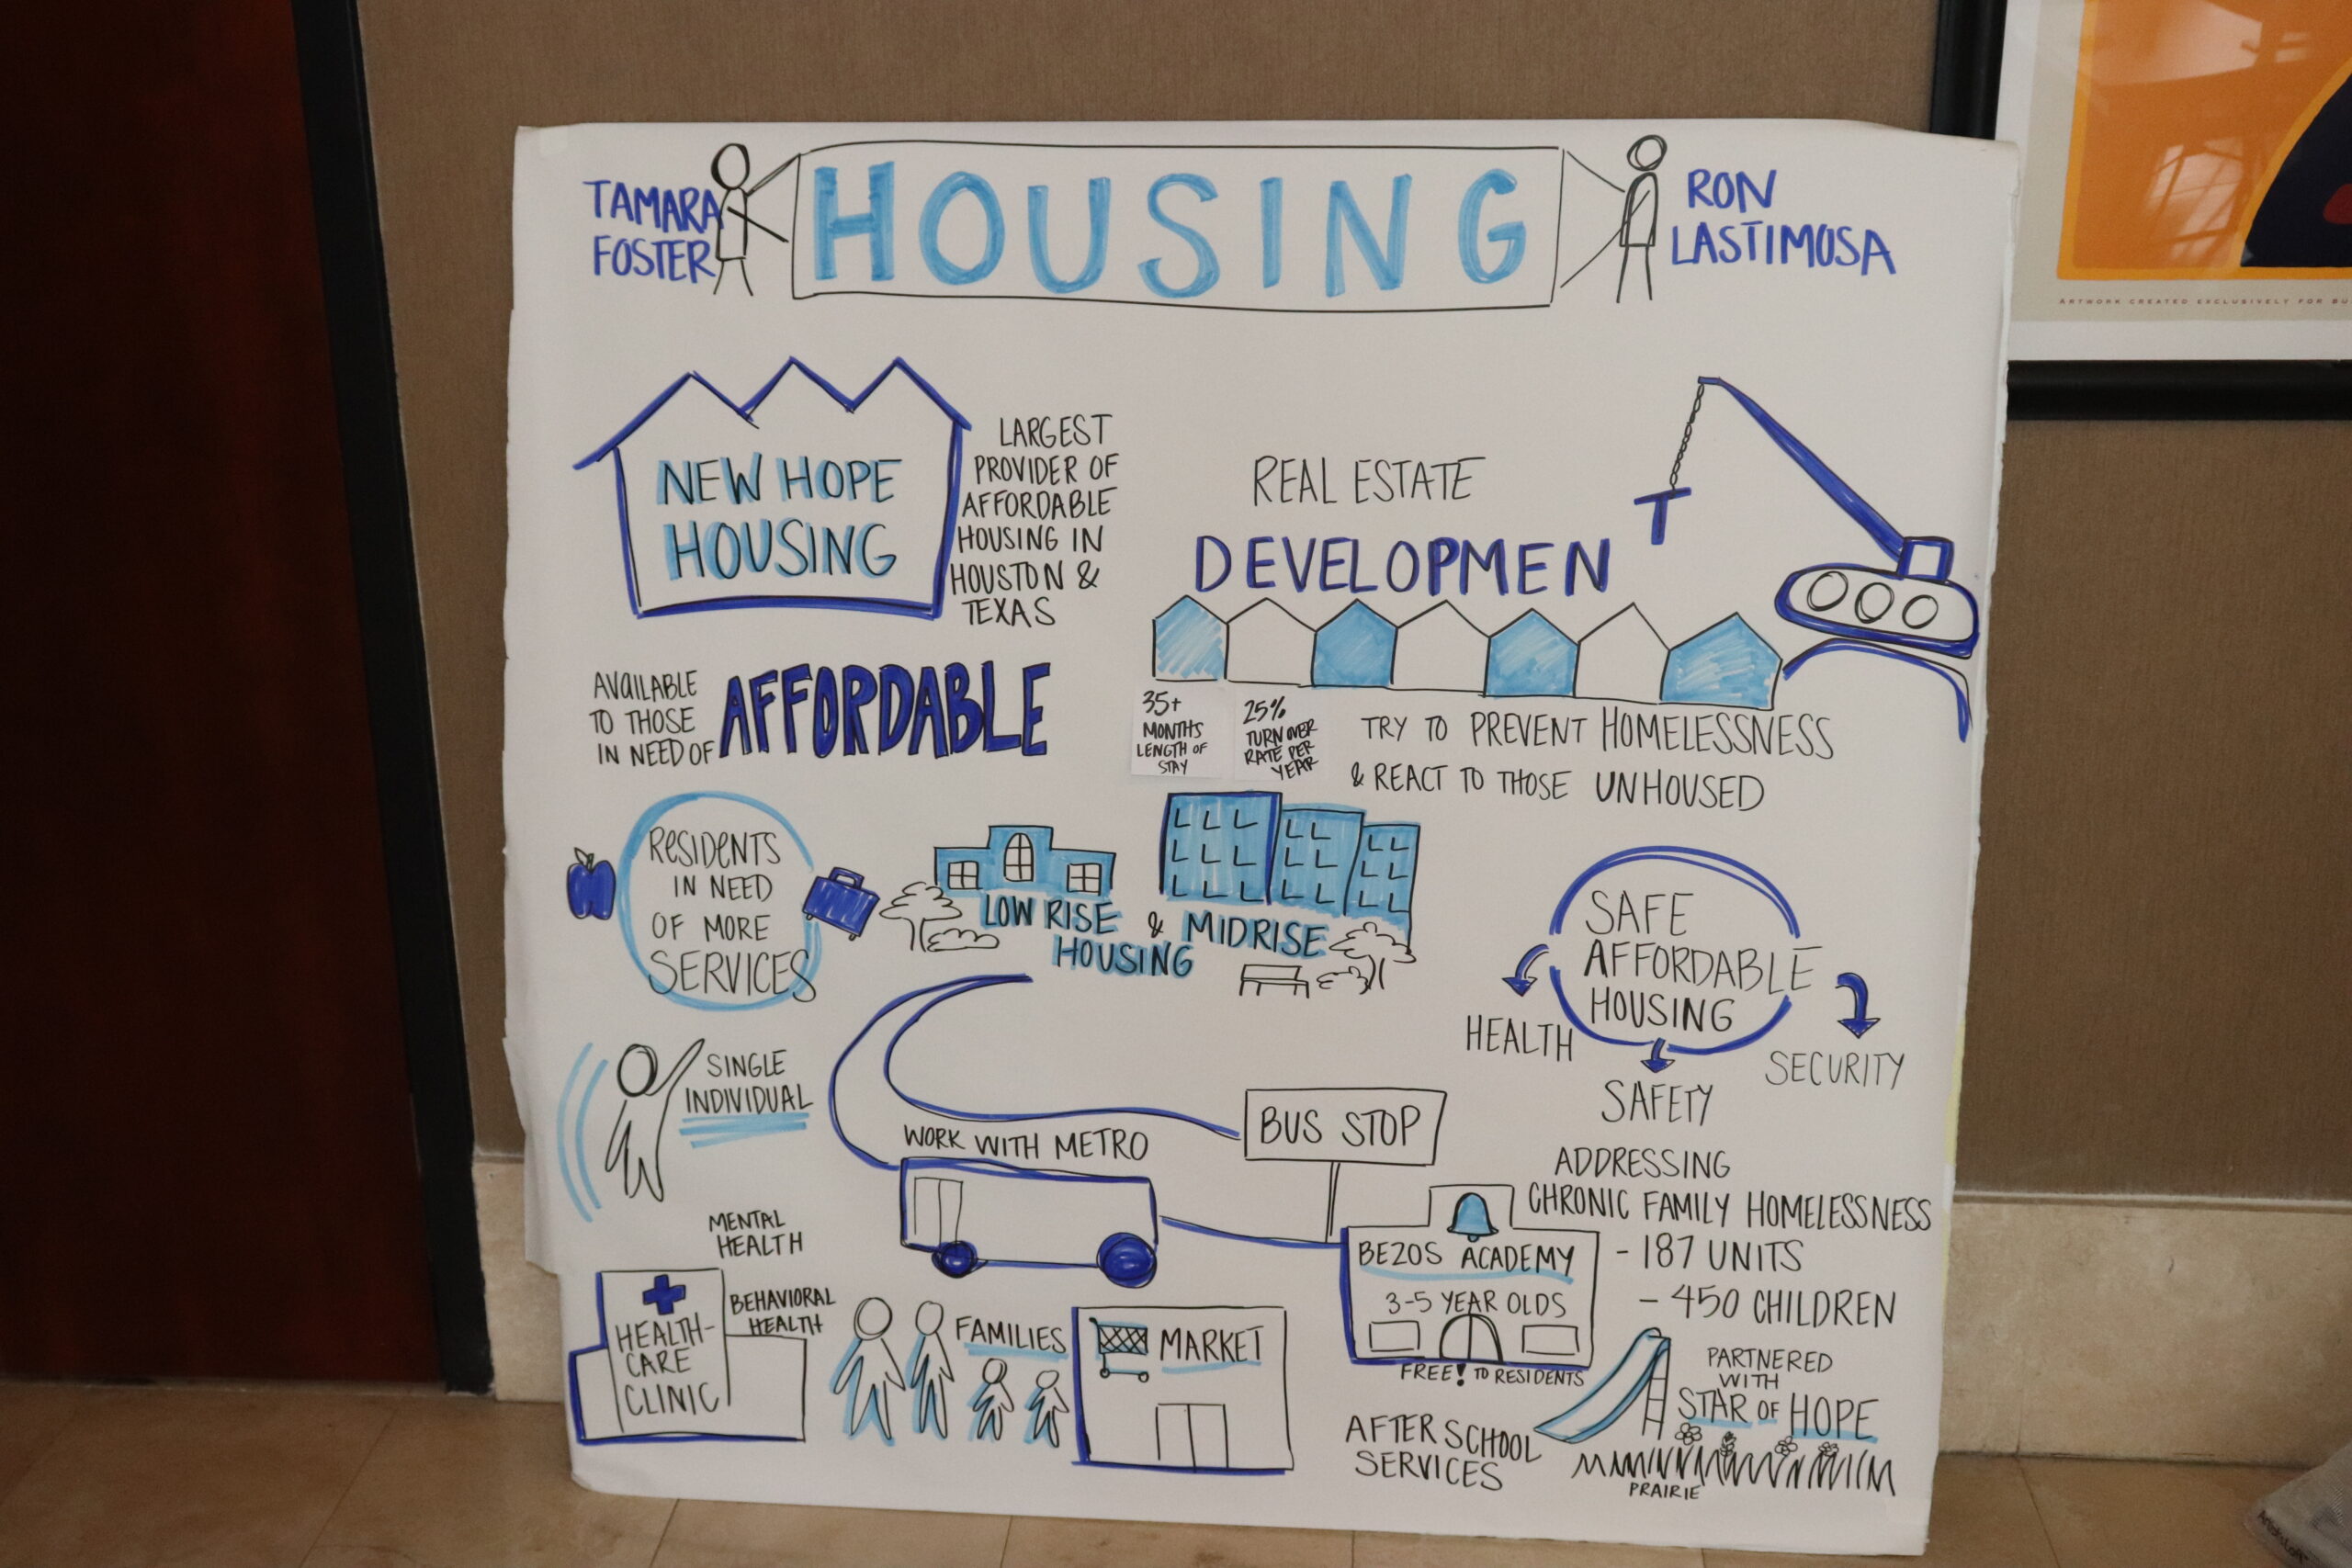 TAMARA
FOSTER
HOUSING
RON
LASTIMOSA
NEW HOPE
HOUSING
LARGEST
PROVIDER OF
AFFORDABLE
HOUSING IN
HOUSTON &
TEXAS
REAL ESTATE
DEVELOPMENT
AVAILABLE
TO THOSE
IN NEED OF
AFFORDABLE
35+
MONTHS
LENGTH OF
STAY
25%
TURN OVER
RATE PER
YEAR
TRY TO PREVENT HOMELESSNESS
& REACT TO THOSE UNHOUSED
RESIDENTS
IN NEED
OF MORE
SERVICES
LOW RISE & MIDRISE
HOUSING
SAFE
AFFORDABLE
HOUSING
HEALTH
SAFETY
SECURITY
SINGLE
INDIVIDUAL
WORK WITH METRO
BUS STOP
ADDRESSING
CHRONIC FAMILY HOMELESSNESS
- 187 UNITS
- 450 CHILDREN
MENTAL
HEALTH
BEHAVIORAL
HEALTH
HEALTH-
CARE
CLINIC
FAMILIES
MARKET
BEZOS ACADEMY
3-5 YEAR OLDS
FREE! TO RESIDENTS
AFTER SCHOOL
SERVICES
PARTNERED
WITH
STAR OF HOPE
PRAIRIE
ARTWORK CREATED EXCLUSIVELY FOR BU